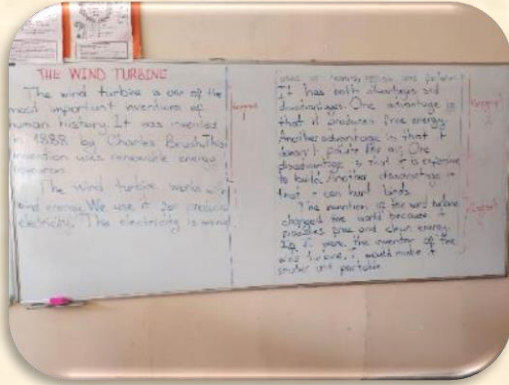 THE WIND TURBINE
The wind turbine is one of the
most important inventions of
human history. It was invented
in 1888 by Charles Brush. This
invention was renewable energy
The wind turbine works with
wind energy. We use it for
electricity. The electricity is
It has both advantages and
disadvantages. One advantage is
that it produces free energy.
Another advantage is that it
doesn't pollute the air. One
disadvantage is that it is expensive
to build. Another disadvantage is
that it can hurt birds.
The invention of the wind turbine
changed the world because it
provides free and clean energy.
If I were the inventor of the
wind turbine, I would make it
smaller and portable.